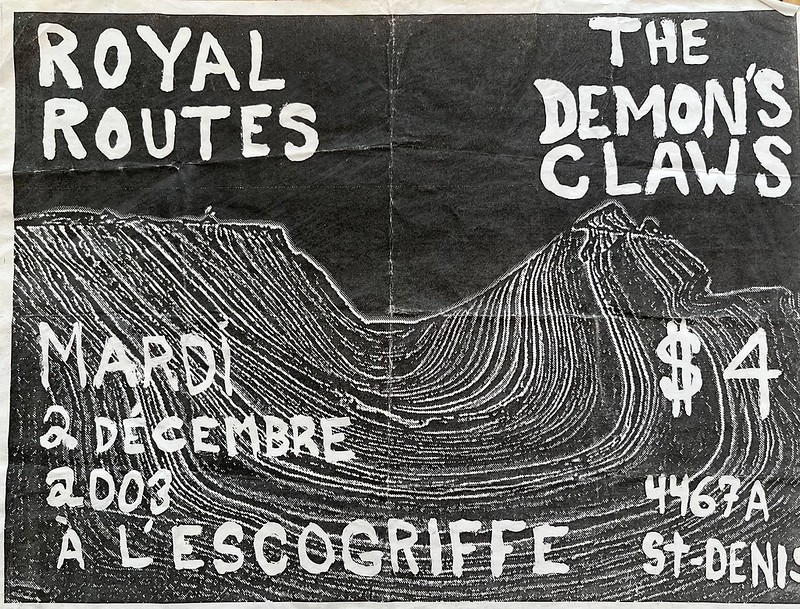 ROYAL
ROUTES
THE
DEMON'S
CLAWS
MARDI
2 DÉCEMBRE
2003
À L'ESCOGRIFFE
$4
4467A
St-DENIS